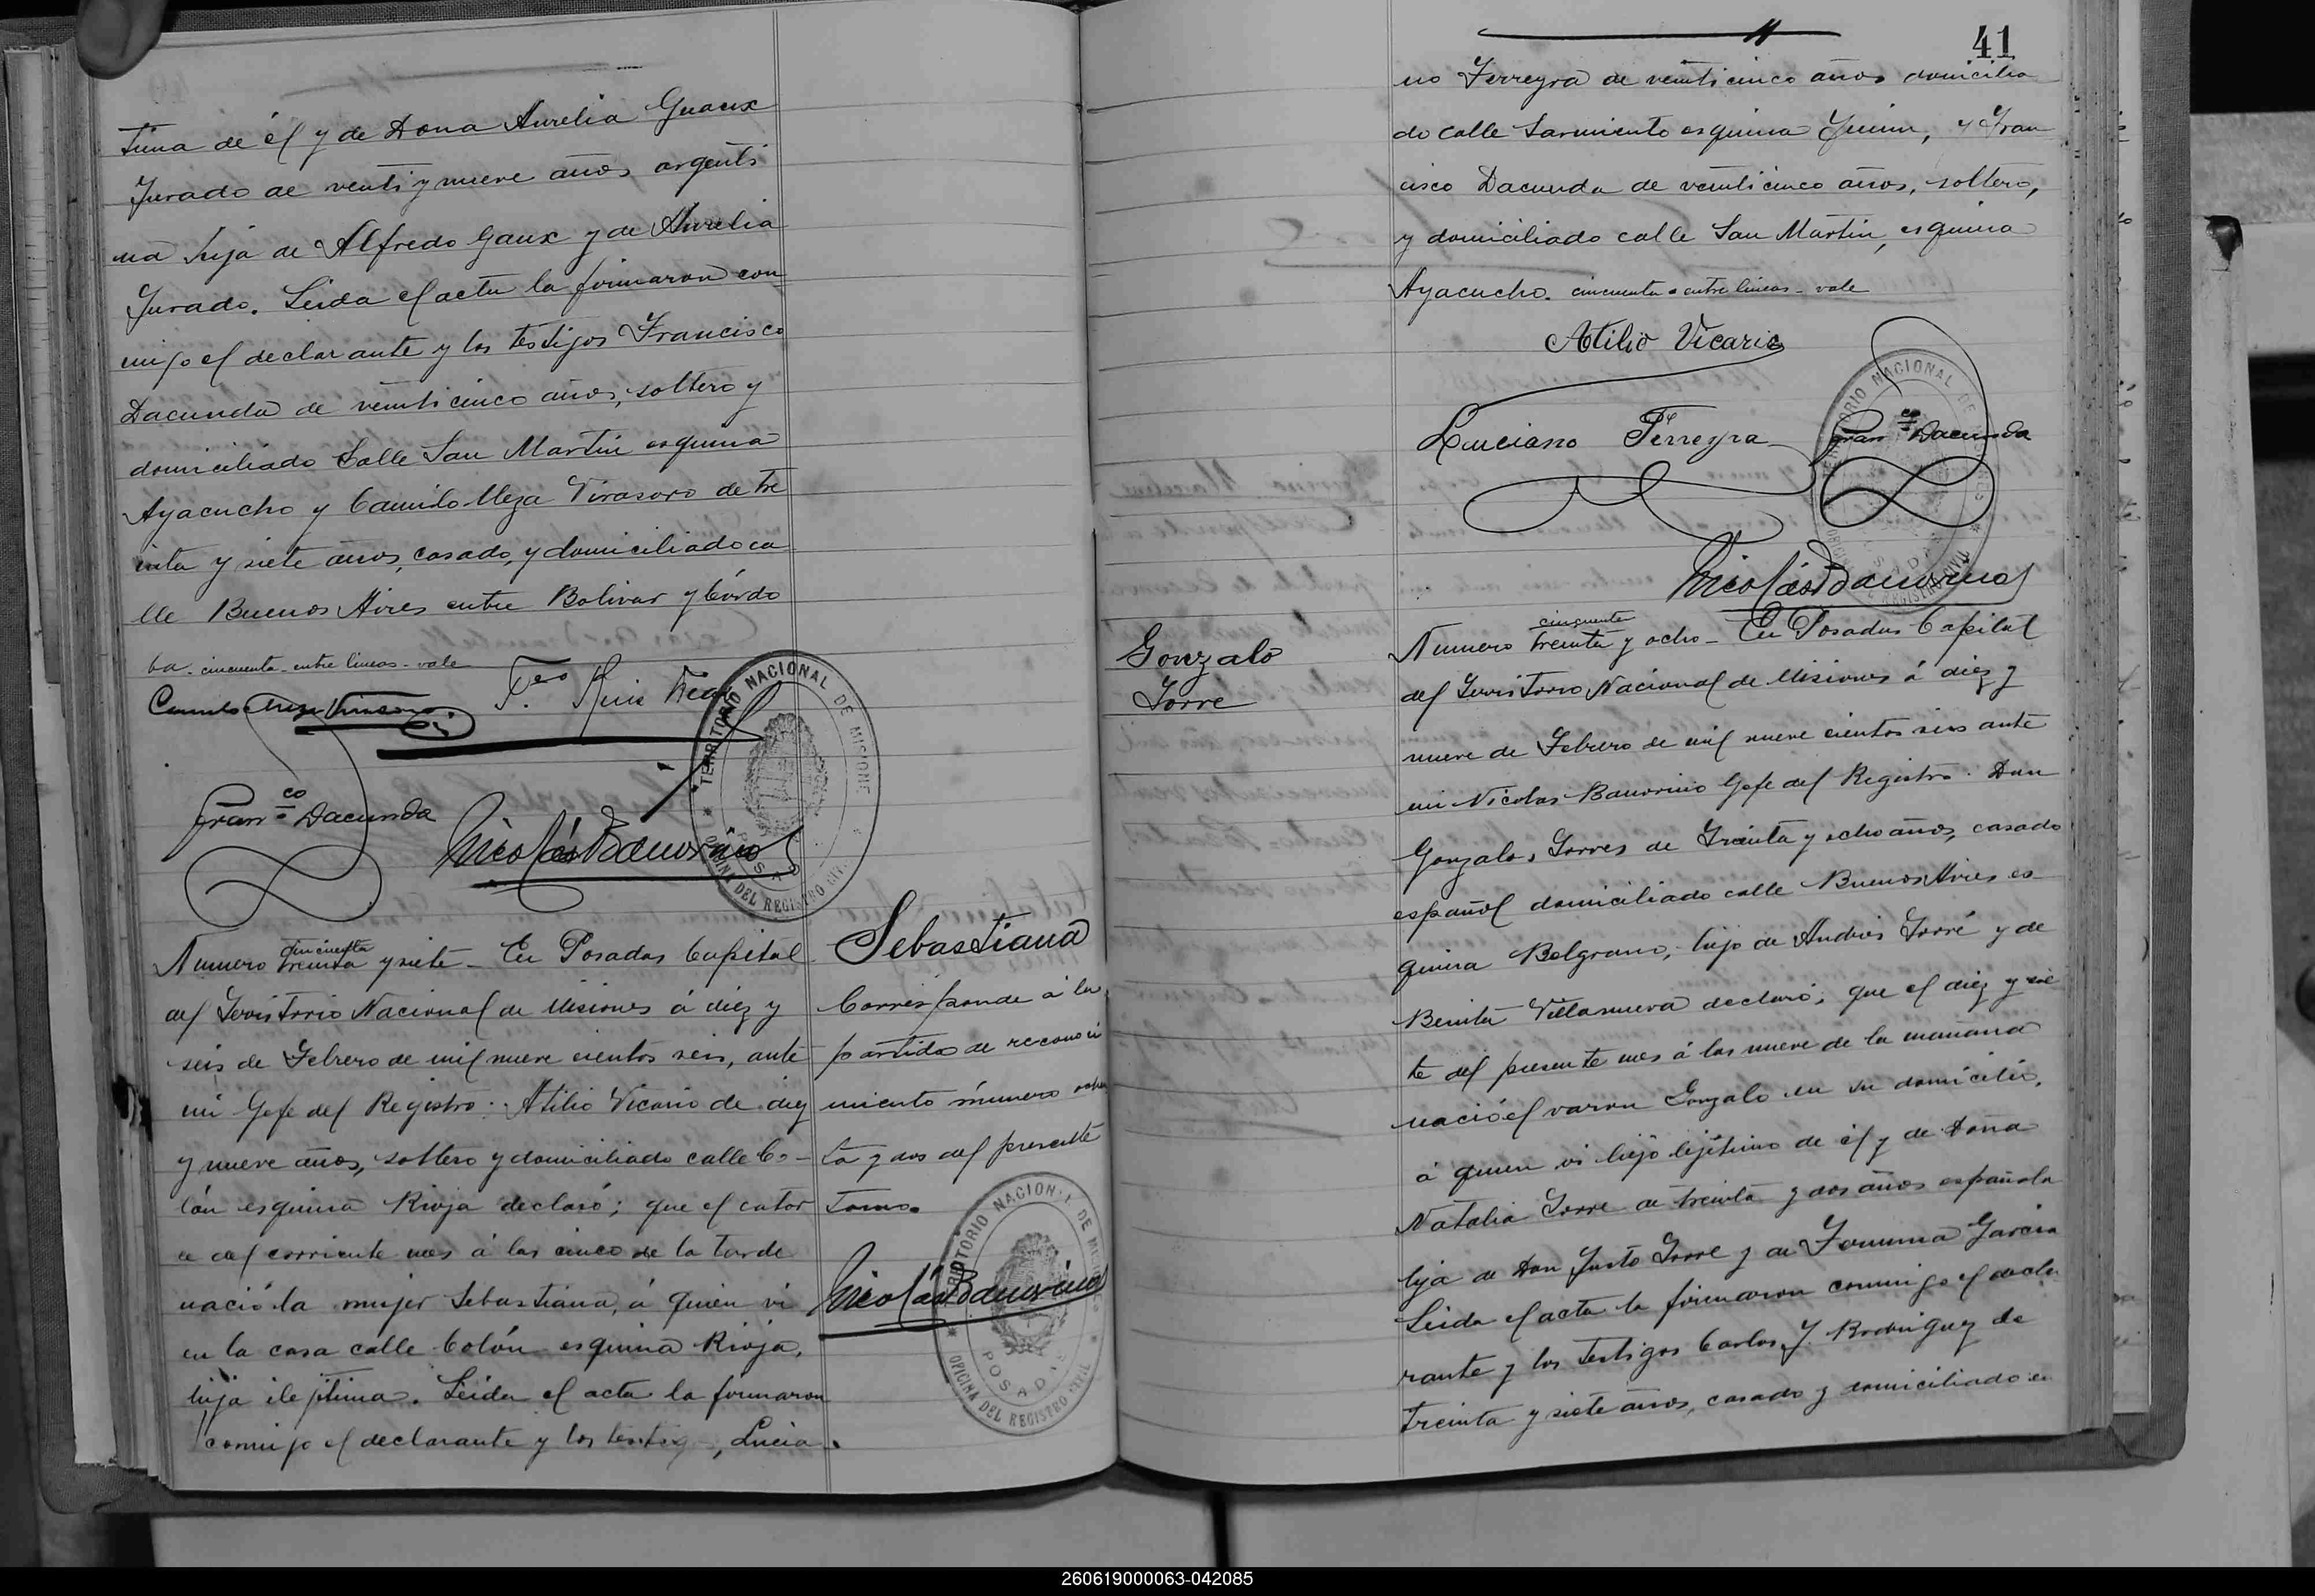 tima de él y de Dona Aurelia Guaux
Jurado de venti y nueve años argenti
na hija de Alfredo Gaux y de Aurelia
Jurado. Leida el acta la firmaron con
migo el declarante y los testigos Francisco
Dacunda de veinticinco años, soltero y
domiciliado Calle San Martin esquina
Ayacucho y Camilo Meza Virasoro de tre
inta y siete años, casado, y domiciliado ca
lle Buenos Aires entre Bolivar y Córdo
ba. cincuenta - entre lineas - vale
Camilo Meza Virasoro
Franco Dacunda
Nicolás Bauorino
TERRITORIO NACIONAL DE MISIONES
OFICINA DEL REGISTRO CIVIL
POSADAS
cincuenta
Numero treinta y siete - En Posadas Capital
del Territorio Nacional de Misiones á diez y
seis de Febrero de mil nueve cientos seis, ante
mi Gefe del Registro: Atilio Vicario de diez
y nueve años, soltero y domiciliado calle Co-
lón esquina Rioja declaró; que el cator
ce del corriente mes á las cinco de la tarde
nació la mujer Sebastiana, á quien vi
en la casa calle Colón esquina Rioja,
hija ilejitima. Leida el acta la firmaron
comigo el declarante y los testig , Lucia
Sebastiana
Corresponde á la
partida de reconoci
miento número ochen
ta y dos del presente
tomo.
Nicolás Bauorino
TERRITORIO NACIONAL DE MISIONES
OFICINA DEL REGISTRO CIVIL
POSADAS
41
no Ferreyra de veinticinco años domicilia
do calle Sarmiento esquina Junin, y Fran
cisco Dacunda de veinticinco años, soltero,
y domiciliado calle San Martin, esquina
Ayacucho. cincuenta - entre lineas - vale
Atilio Vicario
Luciano Ferreyra Franco Dacunda
TERRITORIO NACIONAL DE MISIONES
OFICINA DEL REGISTRO CIVIL
POSADAS
Nicolás Bauorino
Gonzalo
Torre
cincuenta
Numero treinta y ocho - En Posadas Capital
del Territorio Nacional de Misiones á diez y
nueve de Febrero de mil nueve cientos seis ante
mi Nicolas Bauorino Gefe del Registro: Don
Gonzalo Torres de Treinta y ocho años, casado
español domiciliado calle Buenos Aires es
quina Belgrano, hijo de Andrés Torré y de
Benita Villanueva declaró; que el diez y sie
te del presente mes á las nueve de la mañana
nació el varon Gonzalo en su domicilio,
á quien vi hijo lejitimo de él y de Doña
Natalia Torre de treinta y dos años española
hija de Don Justo Torre y de Fermina Garcia
Leida el acta la firmaron conmigo el decla
rante y los testigos Carlos J. Rodriguez de
treinta y siete años, casado y domiciliado en
260619000063-042085